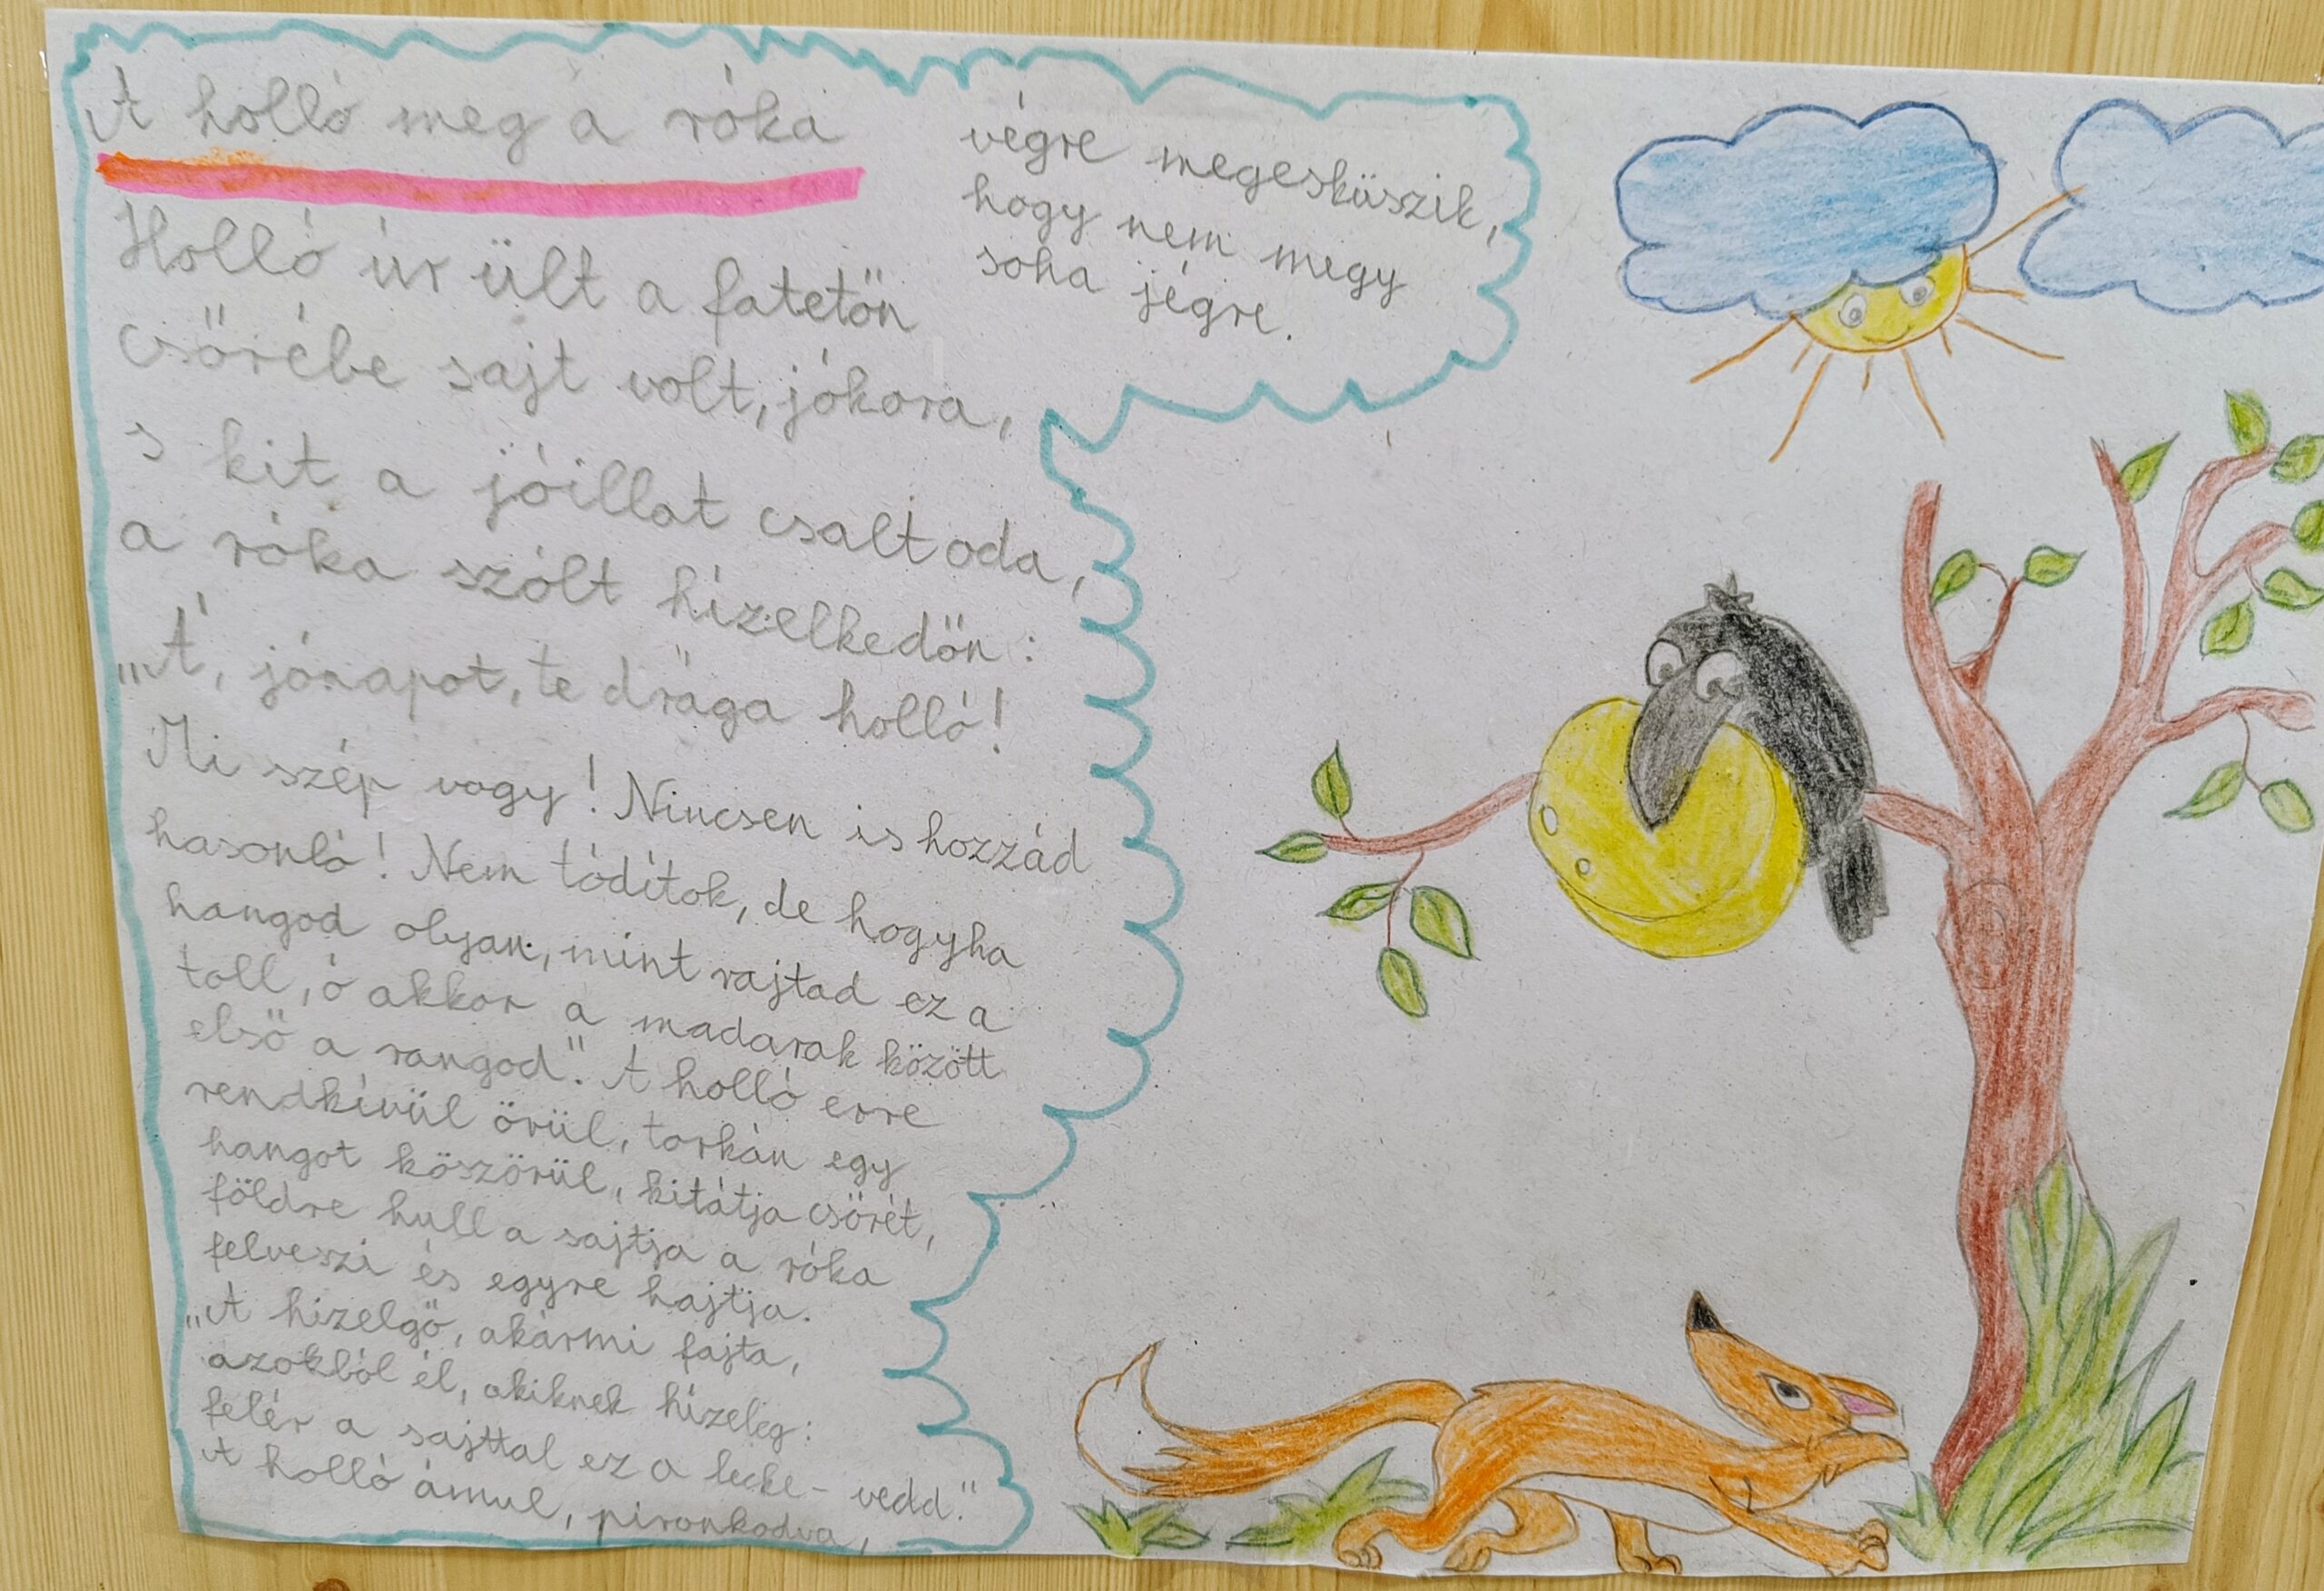 A holló meg a róka
Holló úr ült a fatetőn
csőrébe sajt volt, jókora,
s kit a jóillat csalt oda,
a róka szólt hízelkedőn:
„Á, jónapot, te drága holló!
Mi szép vagy! Nincsen is hozzád
hasonló! Nem tódítok, de hogyha
hangod olyan, mint rajtad ez a
toll, ó akkor a madarak között
első a rangod". A holló erre
rendkívül örül, torkán egy
hangot köszörül, kitátja csőrét,
földre hull a sajtja a róka
felveszi és egyre hajtja.
„A hizelgő, akármi fajta,
azokból él, akiknek hízeleg:
felér a sajttal ez a lecke - vedd."
A holló ámul, pironkodva,
végre megesküszik,
hogy nem megy
soha jégre.